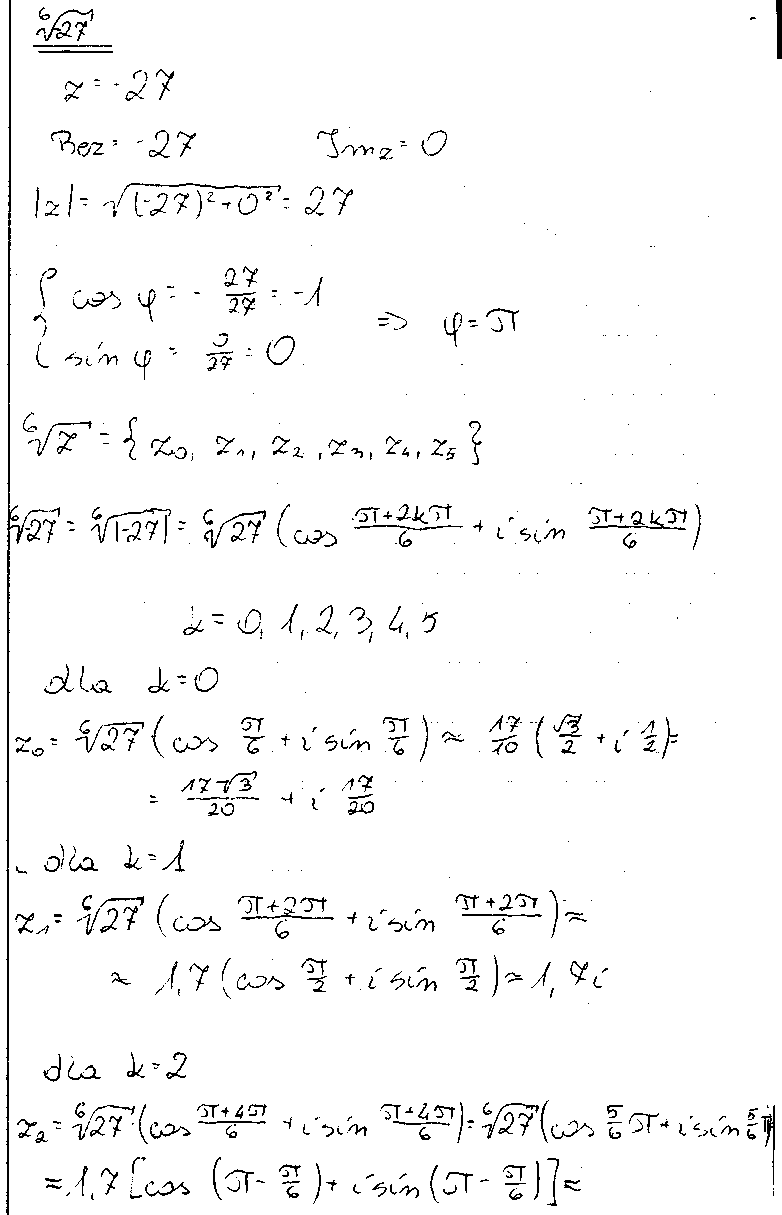 ⁶√27
z = -27
Re z = -27 Im z = 0
|z| = √((-27)² + 0²) = 27
{ cos φ = - 27/27 = -1
⇒ φ = π
{ sin φ = 0/27 = 0
⁶√z = { z₀, z₁, z₂, z₃, z₄, z₅ }
⁶√27 = ⁶√|-27| = ⁶√27 (cos (π+2kπ)/6 + i sin (π+2kπ)/6)
k = 0, 1, 2, 3, 4, 5
dla k=0
z₀ = ⁶√27 (cos π/6 + i sin π/6) ≈ 17/10 (√3/2 + i 1/2) =
= 17√3/20 + i 17/20
dla k=1
z₁ = ⁶√27 (cos (π+2π)/6 + i sin (π+2π)/6) ≈
≈ 1,7 (cos π/2 + i sin π/2) ≈ 1,7i
dla k=2
z₂ = ⁶√27 (cos (π+4π)/6 + i sin (π+4π)/6) = ⁶√27 (cos 5/6 π + i sin 5/6 π)
≈ 1,7 [cos (π - π/6) + i sin (π - π/6)] ≈